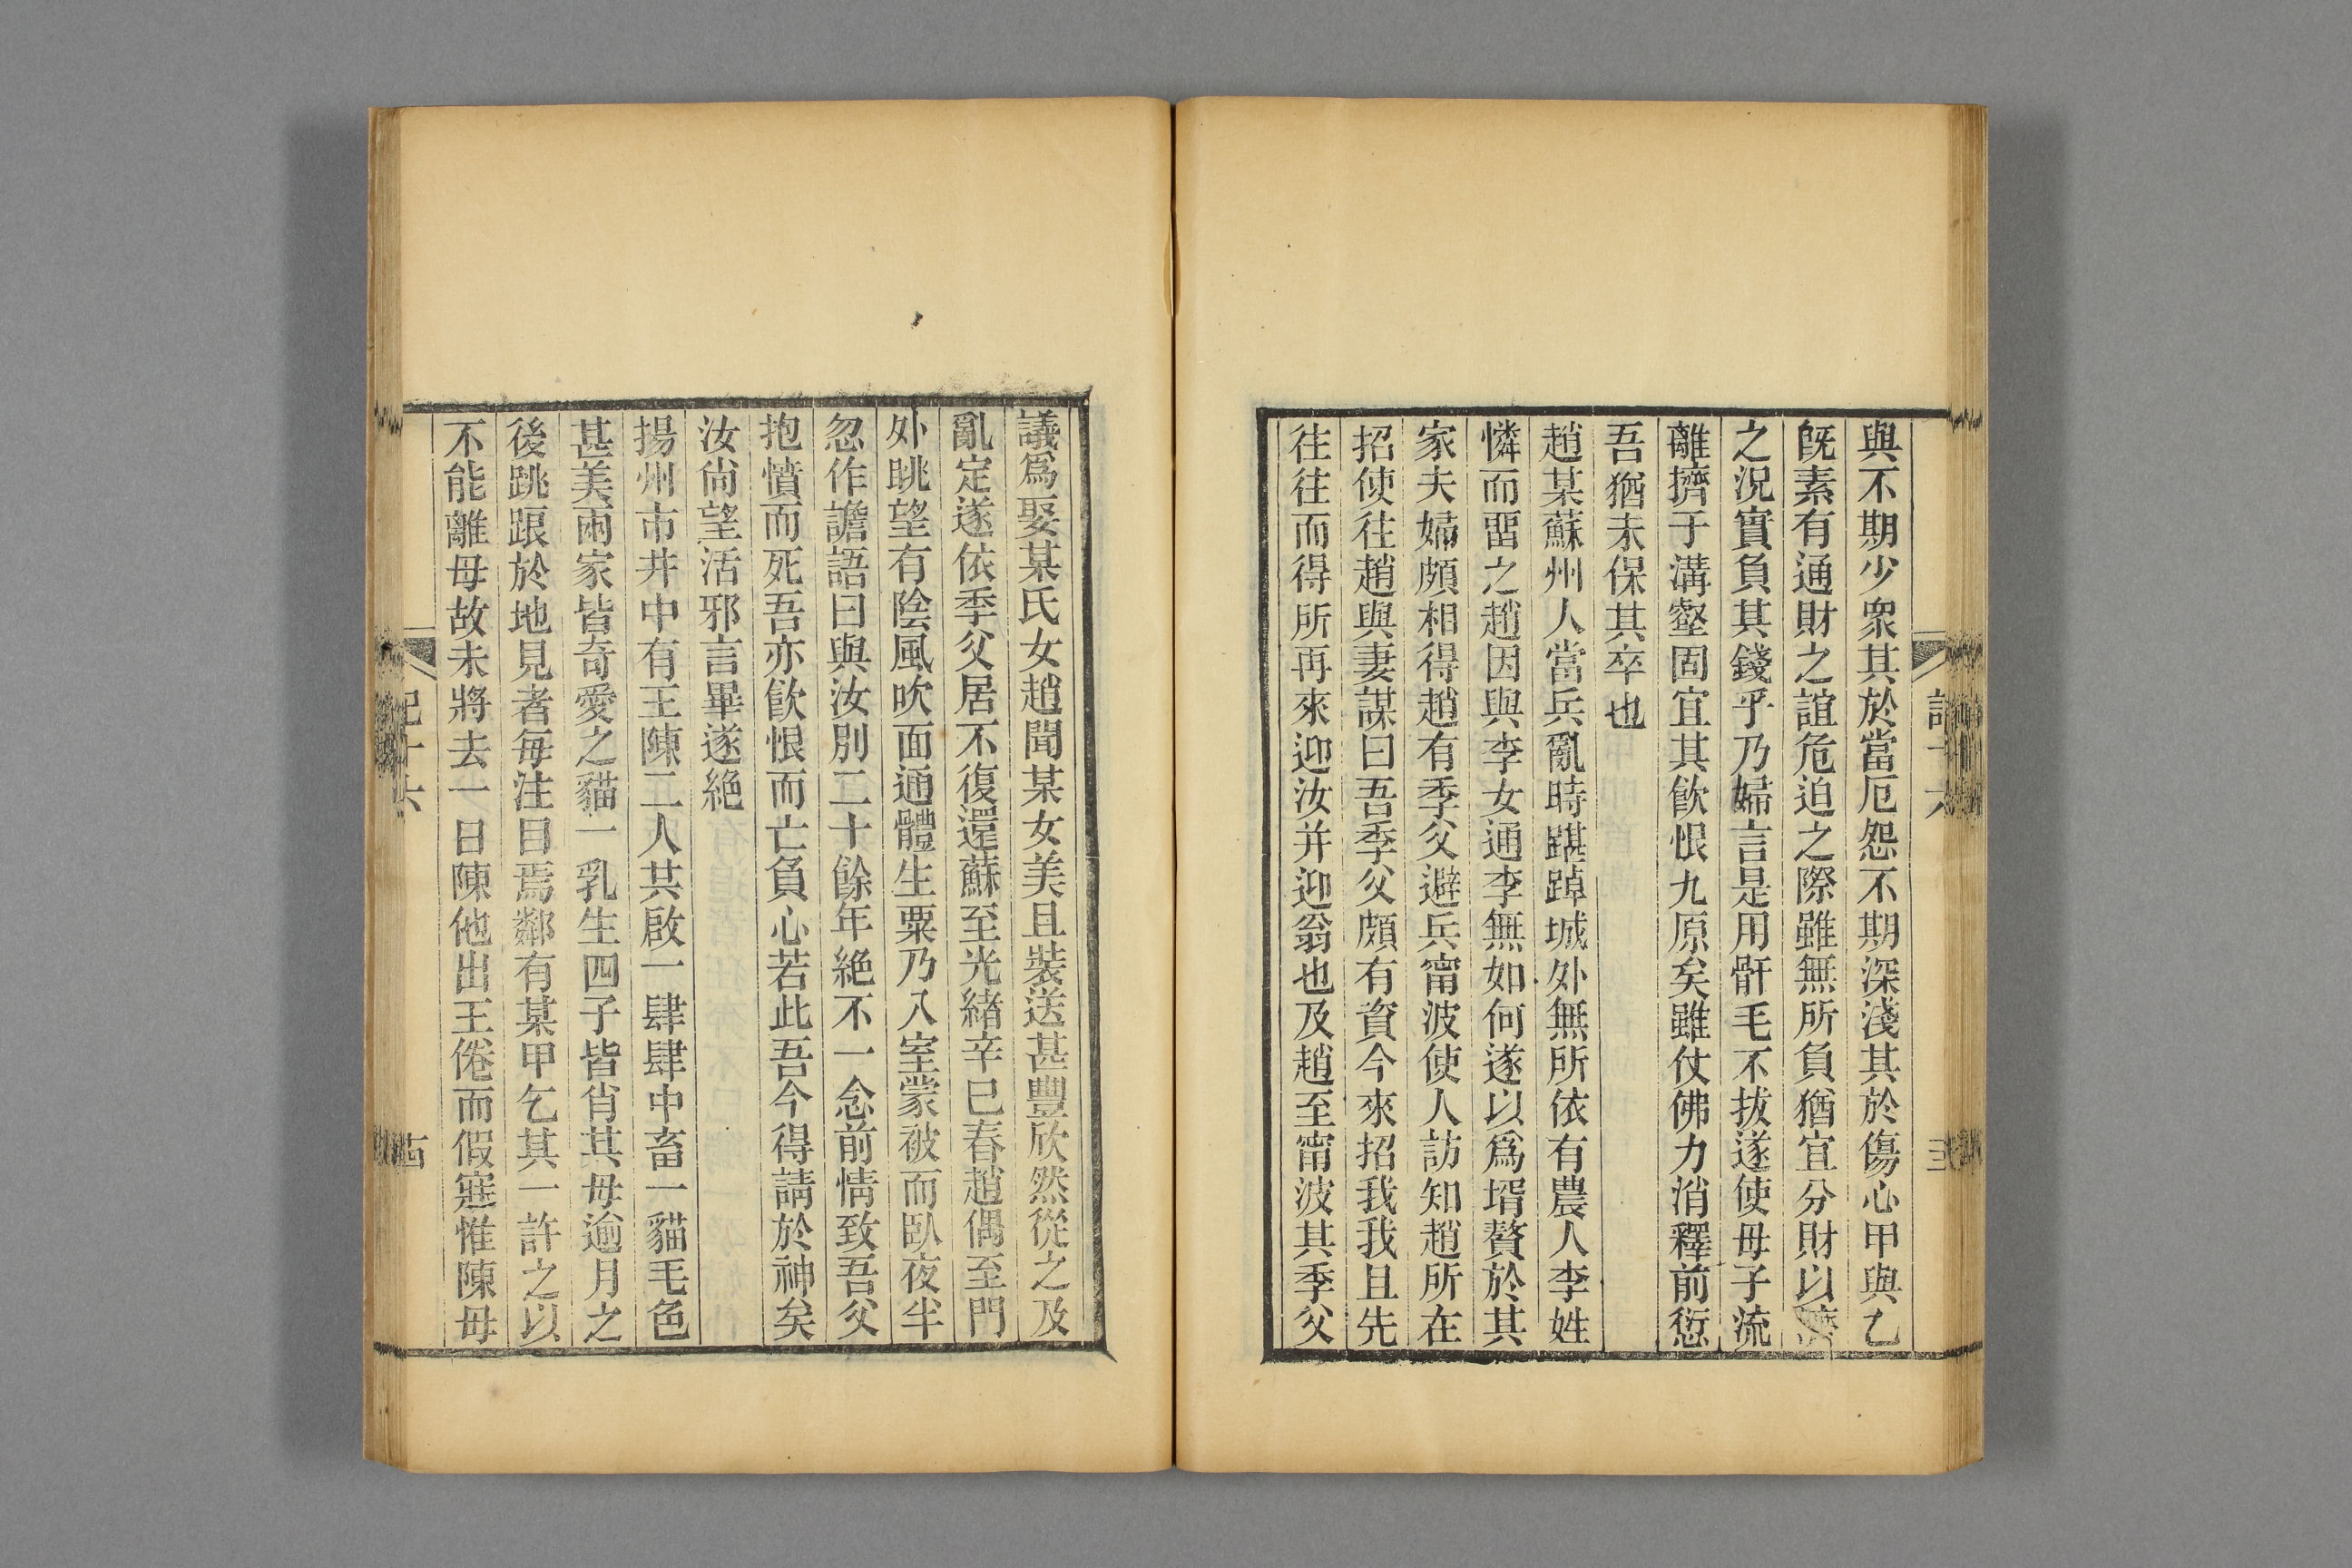 與不期少衆其於當厄怨不期深淺其於傷心甲與乙
旣素有通財之誼危迫之際雖無所負猶宜分財以濟
之況實負其錢乎乃婦言是用骭毛不拔遂使母子流
離擠于溝壑固宜其飮恨九原矣雖仗佛力消釋前愆
吾猶未保其卒也
趙某蘇州人當兵亂時踸踔城外無所依有農人李姓
憐而畱之趙因與李女通李無如何遂以爲壻贅於其
家夫婦頗相得趙有季父避兵甯波使人訪知趙所在
招使往趙與妻謀曰吾季父頗有資今來招我我且先
往往而得所再來迎汝并迎翁也及趙至甯波其季父
議爲娶某氏女趙聞某女美且裝送甚豐欣然從之及
亂定遂依季父居不復還蘇至光緖辛巳春趙偶至門
外眺望有陰風吹面通體生粟乃入室蒙被而臥夜半
忽作譫語曰與汝別二十餘年絶不一念前情致吾父
抱憤而死吾亦飮恨而亡負心若此吾今得請於神矣
汝尙望活邪言畢遂絶
揚州市井中有王陳二人共啟一肆肆中畜一貓毛色
甚美兩家皆奇愛之貓一乳生四子皆肖其母逾月之
後跳踉於地見者每注目焉鄰有某甲乞其一許之以
不能離母故未將去一日陳他出王倦而假寐惟陳母
記十六